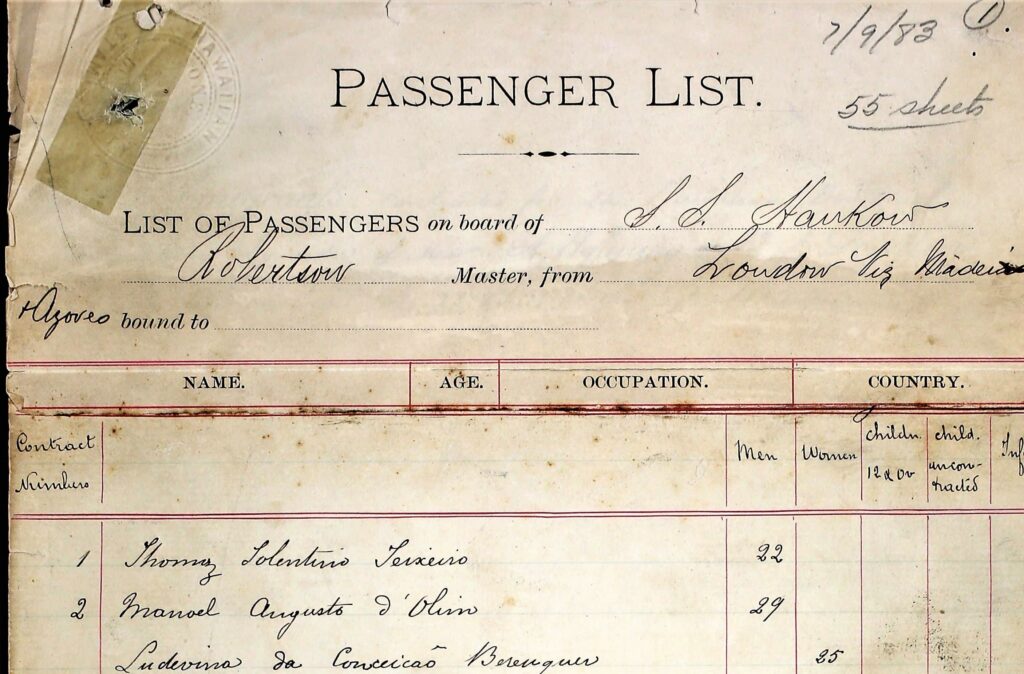 7/9/83 1
PASSENGER LIST.
55 sheets
LIST OF PASSENGERS on board of S. S. Hankow
Robertson Master, from London Via Madeira
+ Azores bound to
NAME. AGE. OCCUPATION. COUNTRY.
Contract Numbers Men Women childn. 12 & ov child. uncon-tracted Inf
1 Thomaz Tolentino Teixeiro 22
2 Manoel Augusto d'Olim 29
Ludevina da Conceicaõ Berenguer 25